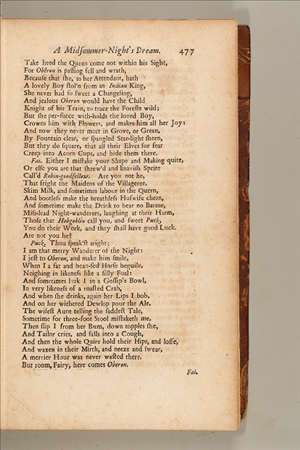 A Midsummer-Night's Dream. 477
Take heed the Queen come not within his Sight,
For Oberon is passing fell and wrath,
Because that she, as her Attendant, hath
A lovely Boy stol'n from an Indian King,
She never had so sweet a Changeling,
And jealous Oberon would have the Child
Knight of his Train, to trace the Forests wild;
But she per-force with-holds the loved Boy,
Crowns him with Flowers, and makes him all her Joy:
And now they never meet in Grove, or Green,
By Fountain clear, or spangled Star-light sheen,
But they do square, that all their Elves for fear
Creep into Acorn Cups, and hide them there.
Fai. Either I mistake your Shape and Making quite,
Or else you are that shrew'd and knavish Sprite
Call'd Robin-goodfellow. Are you not he,
That fright the Maidens of the Villageree,
Skim Milk, and sometimes labour in the Quern,
And bootless make the breathless Huswife chern,
And sometime make the Drink to bear no Barme,
Mis-lead Night-wanderers, laughing at their Harm,
Those that Hobgoblin call you, and sweet Puck,
You do their Work, and they shall have good Luck.
Are not you he?
Puck, Thou speak'st aright;
I am that merry Wanderer of the Night:
I jest to Oberon, and make him smile,
When I a fat and bean-fed Horse beguile,
Neighing in likeness of a silly Foal:
And sometimes lurk I in a Gossip's Bowl,
In very likeness of a roasted Crab,
And when she drinks, again her Lips I bob,
And on her withered Dewlop pour the Ale.
The wisest Aunt telling the saddest Tale,
Sometime for three-foot Stool mistaketh me,
Then slip I from her Bum, down topples she,
And Tailor cries, and falls into a Cough,
And then the whole Quire hold their Hips, and loffe,
And waxen in their Mirth, and neeze and swear,
A merrier Hour was never wasted there.
But room, Fairy, here comes Oberon.
Fai.